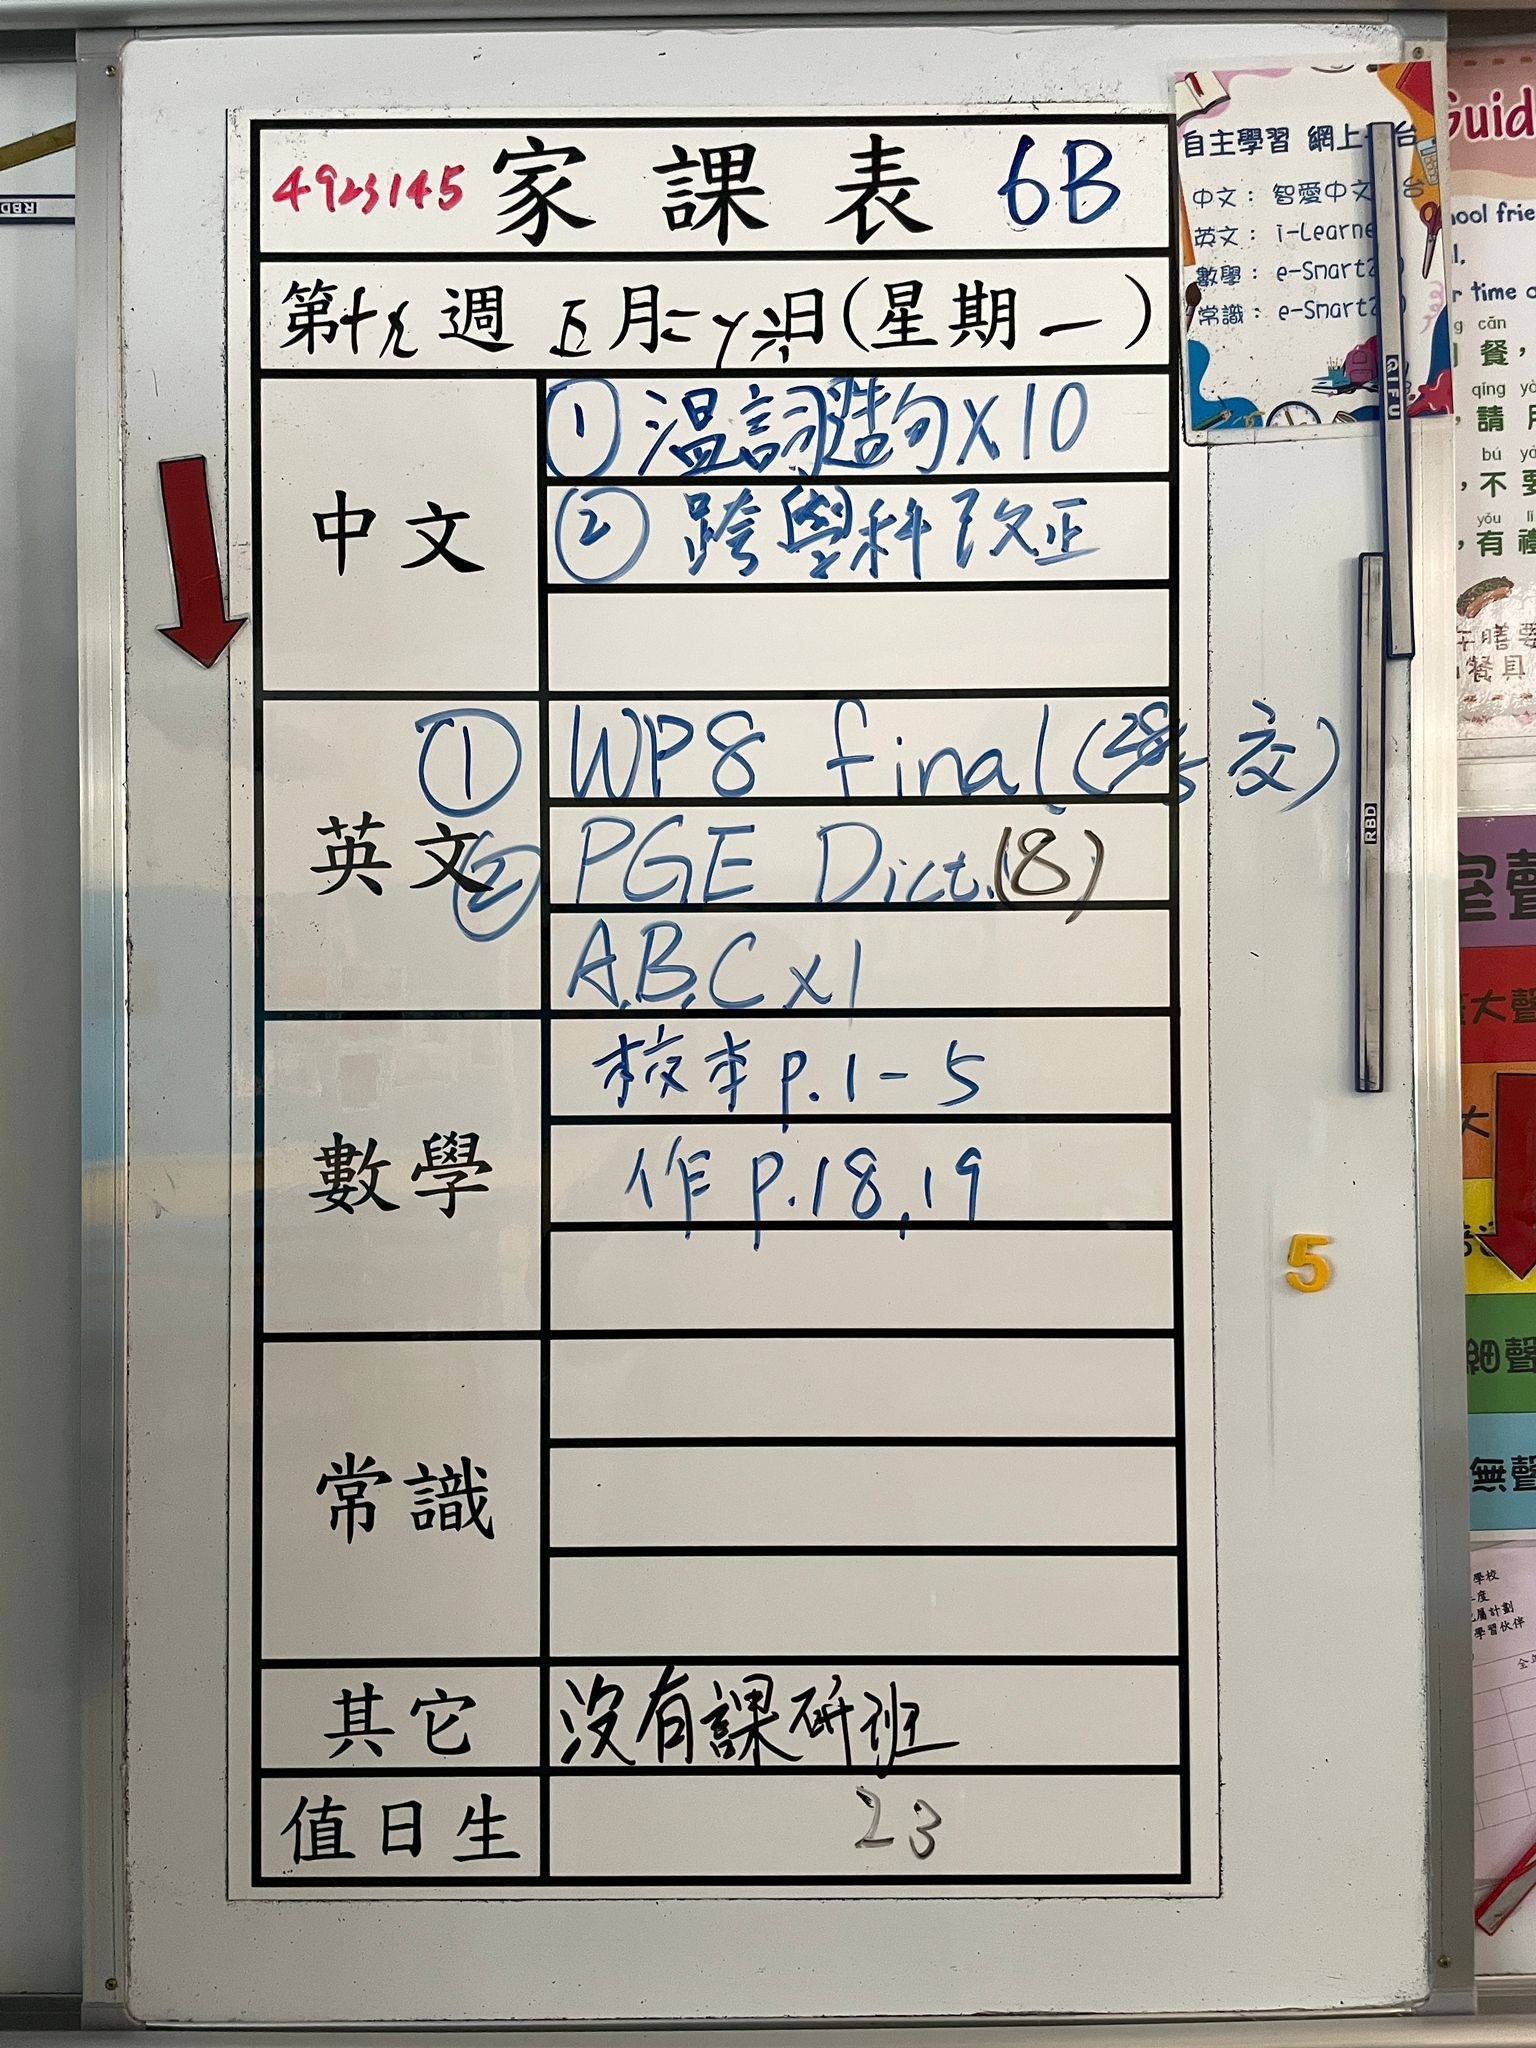 4923145 家課表 6B
第十九週 五月二十六日(星期一)
中文
① 温詞造句 x10
② 跨學科改正
英文
① WP8 final (28/5 交)
② PGE Dict. (8)
A,B,C x1
數學
校本 p.1-5
作 p.18,19
常識
其它
沒有課研班
值日生
23
自主學習 網上
台
中文: 智愛中文
台
英文: i-Learne
數學: e-Smart
常識: e-Smart
QIFU
RBD
RBD
5
Guid
hool frie
l.
r time o
cān
餐,
qǐng
請
bú
,不
yǒu
,有
餐具
聲
大聲
大
細聲
無聲
學校
度
屬計劃
學習伙伴